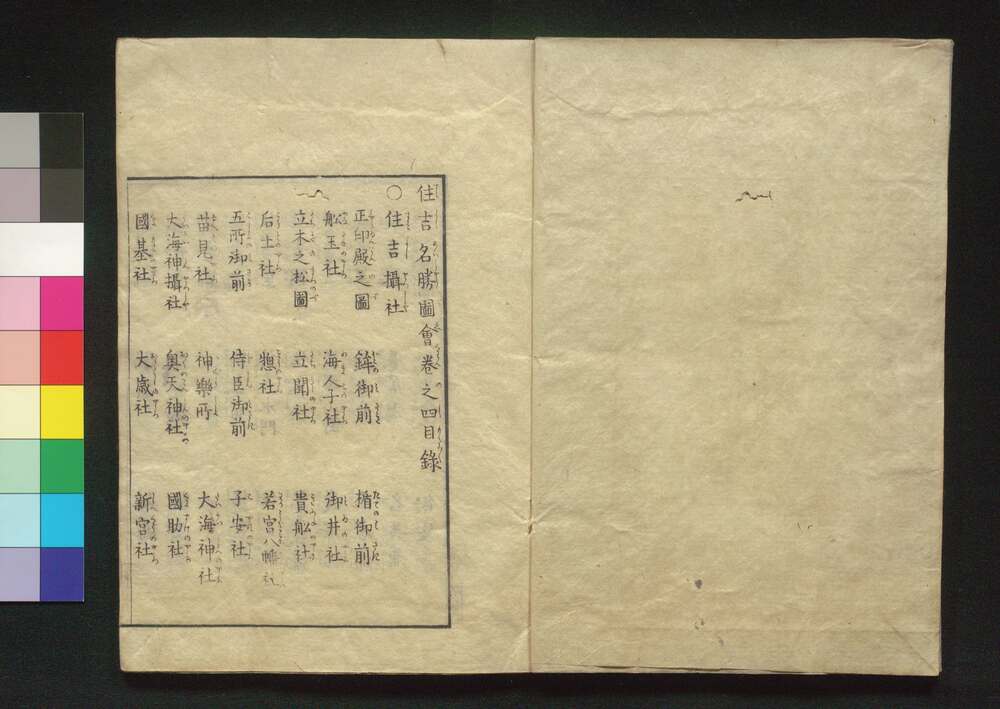 住吉名勝圖會卷之四目錄
○住吉攝社
正印殿之圖 鉾御前 楯御前
舩玉社 海人子社 御井社
立木之松圖 立聞社 貴舩社
后土社 惣社 若宮八幡社
五所御前 侍臣御前 子安社
苗見社 神樂所 大海神社
大海神攝社 奥天神社 國助社
國基社 大歳社 新宮社